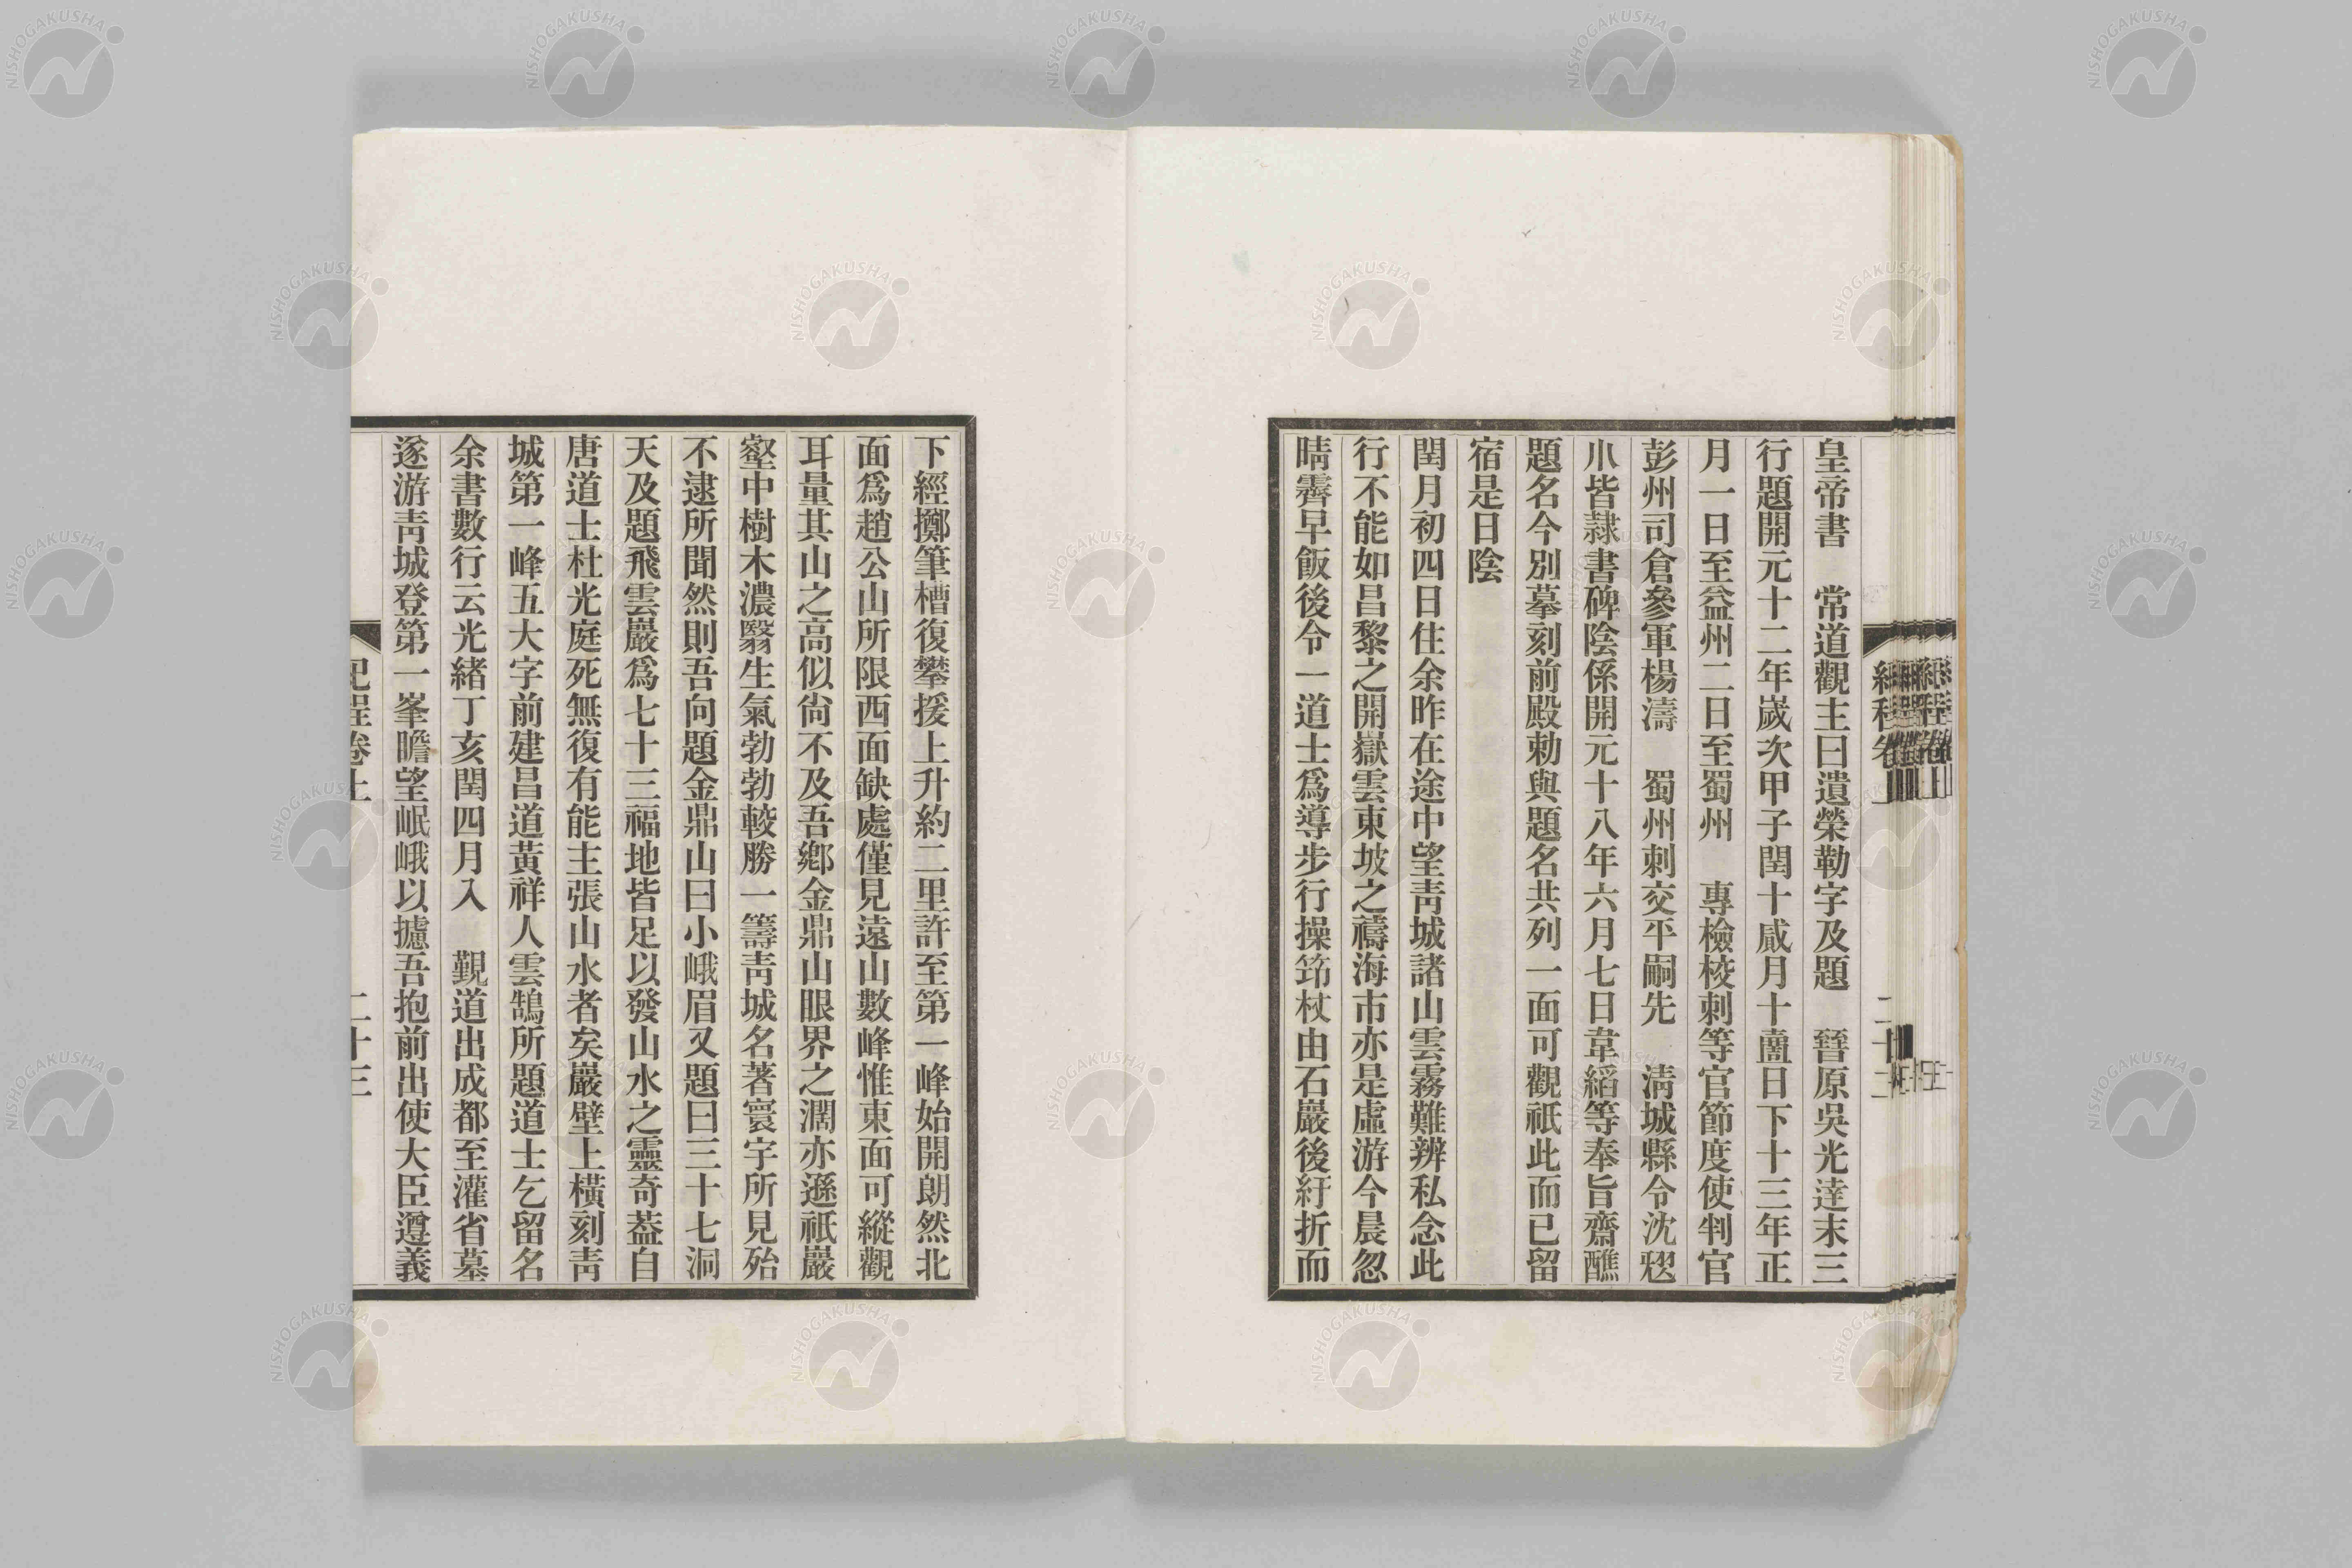 皇帝書　常道觀主曰遺榮勒字及題　晉原吳光逹末三
行題開元十二年歲次甲子閏十二月十日下十三年正
月一日至益州二日至蜀州　專檢校刺等官節度使判官
彭州司倉參軍楊濤　蜀州刺交平嗣先　淸城縣令沈
皆隷書碑陰係開元十八年六月七日韋縚等奉旨齋醮
題名今別摹刻前殿勅與題名共列一面可觀祇此而已留
宿是日陰
閏月初四日住余昨在途中望靑城諸山雲霧難辨私念此
行不能如昌黎之開嶽雲東坡之禱海市亦是虛游今晨忽
晴霽早飯後令一道士爲導步行操笻杖由石巖後紆折而
下經擲筆槽復攀援上升約二里許至第一峰始開朗然北
面爲趙公山所限西面缺處僅見遠山數峰惟東面可縱觀
耳量其山之高似尙不及吾鄕金鼎山眼界之濶亦遜祇巖
壑中樹木濃翳生氣勃勃較勝一籌靑城名著寰宇所見殆
不逮所聞然則吾向題金鼎山曰小峨眉又題曰三十七洞
天及題飛雲巖爲七十三福地皆足以發山水之靈奇葢自
唐道士杜光庭死無復有能主張山水者矣巖壁上橫刻靑
城第一峰五大字前建昌道黃祥人雲鵠所題道士乞留名
余書數行云光緖丁亥閏四月入　覲道出成都至灌省墓
遂游靑城登第一峯瞻望岷峨以攄吾抱前出使大臣遵義
紀程卷上　二十三
NISHOGAKUSHA